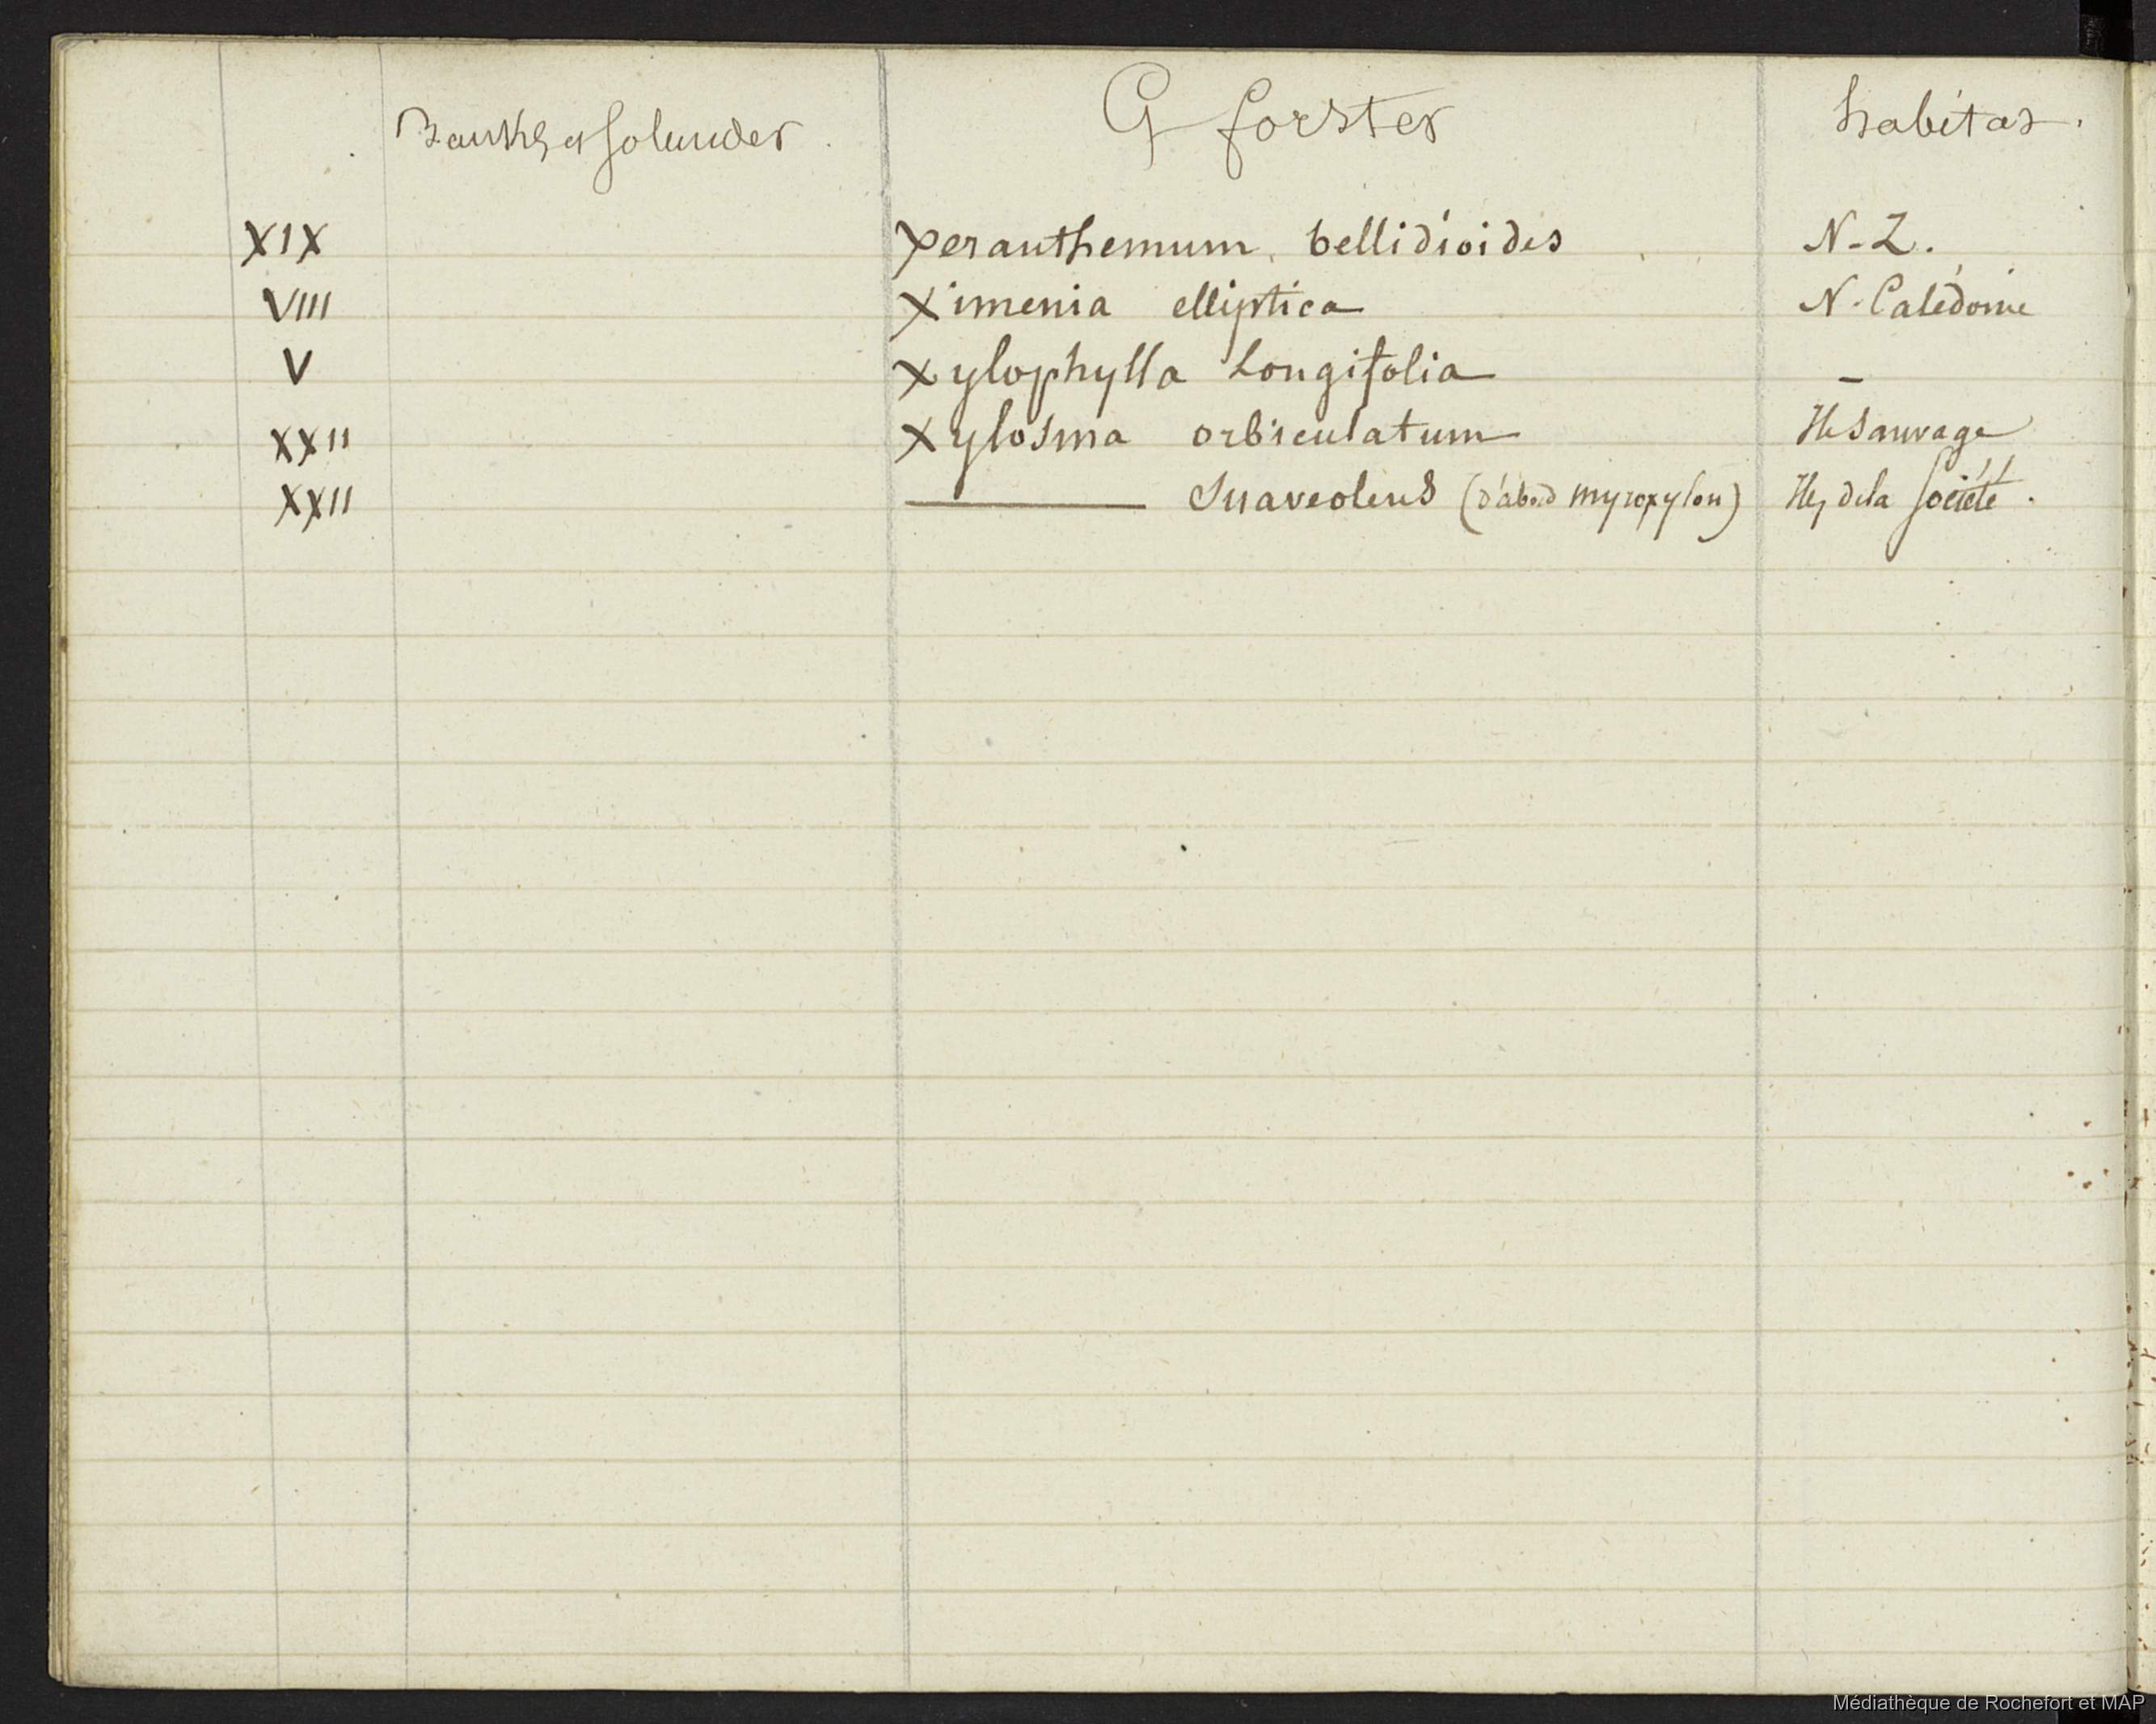 Banks et Solander G Forster habitat.
XIX Xeranthemum bellidioides N-Z.
VIII Ximenia elliptica N. Calédonie
V Xylophylla Longifolia —
XXII Xylosma orbiculatum Ile Sauvage
XXII ——— Suaveolens (d'abord myroxylon) Iles de la Société.
Médiathèque de Rochefort et MAP